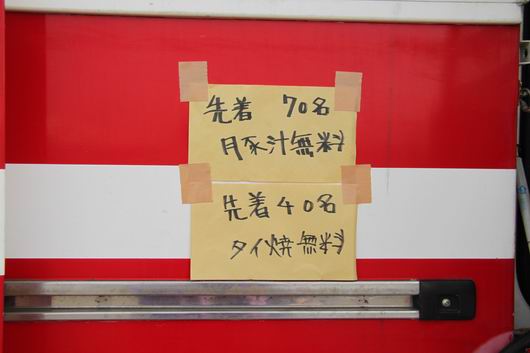 先着 70名
豚汁無料
先着40名
タイ焼無料